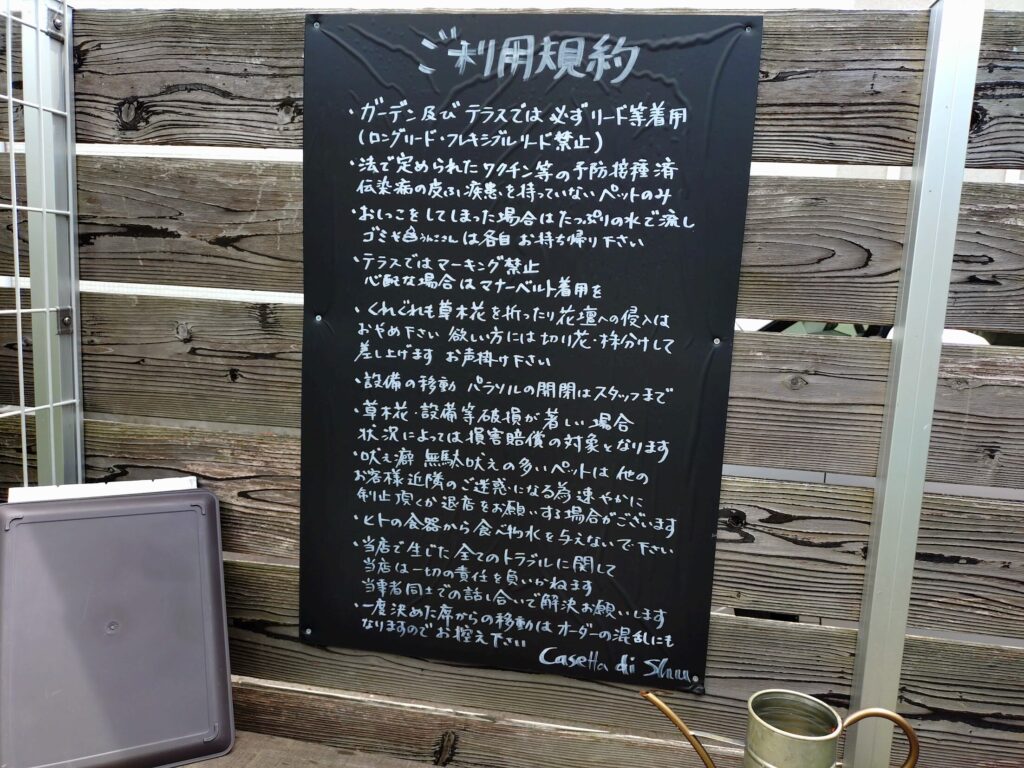 ご利用規約
・ガーデン及び テラスでは 必ずリード等着用
(ロングリード・フレキシブルリード禁止)
・法で定められたワクチン等の予防接種済
伝染病の皮ふ疾患を持っていないペットのみ
・おしっこをしてしまった場合はたっぷりの水で流し
ゴミやうんこさんは各自お持ち帰り下さい
・テラスではマーキング禁止
心配な場合はマナーベルト着用を
・くれぐれも草木花を折ったり花壇への侵入は
おやめ下さい 欲しい方には切り花・株分けして
差し上げます お声掛け下さい
・設備の移動 パラソルの開閉はスタッフまで
・草木花・設備等破損が著しい場合
状況によっては損害賠償の対象となります
・吠え癖 無駄吠えの多いペットは他の
お客様近隣のご迷惑になる為速やかに
制止頂くか退店をお願いする場合がございます
・ヒトの食器から食べ物水を与えないで下さい
・当店で生じた全てのトラブルに関して
当店は一切の責任を負いかねます
当事者同士での話し合いで解決お願いします
・一度決めた席からの移動はオーダーの混乱にも
なりますのでお控え下さい
Casetta di Shuya